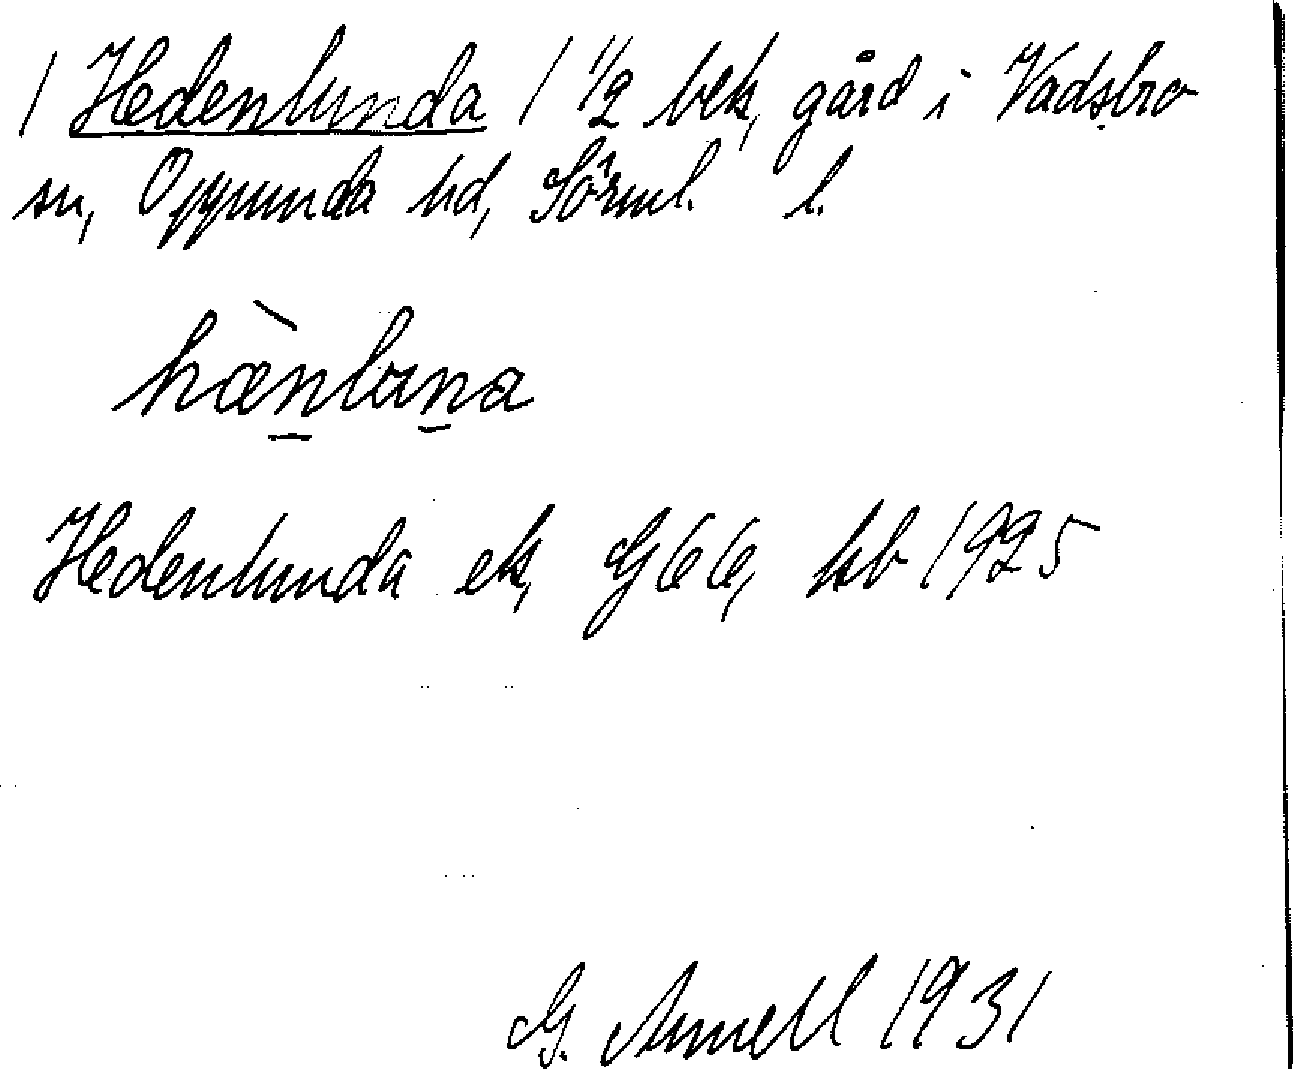 / Hedenlunda / 1/2 bek, gård i Vadsbro
sn, Oppunda hd, Sörml. l.
hæ̀nlana
Hedenlunda ek, G66, kb 1925
G. Annell 1931